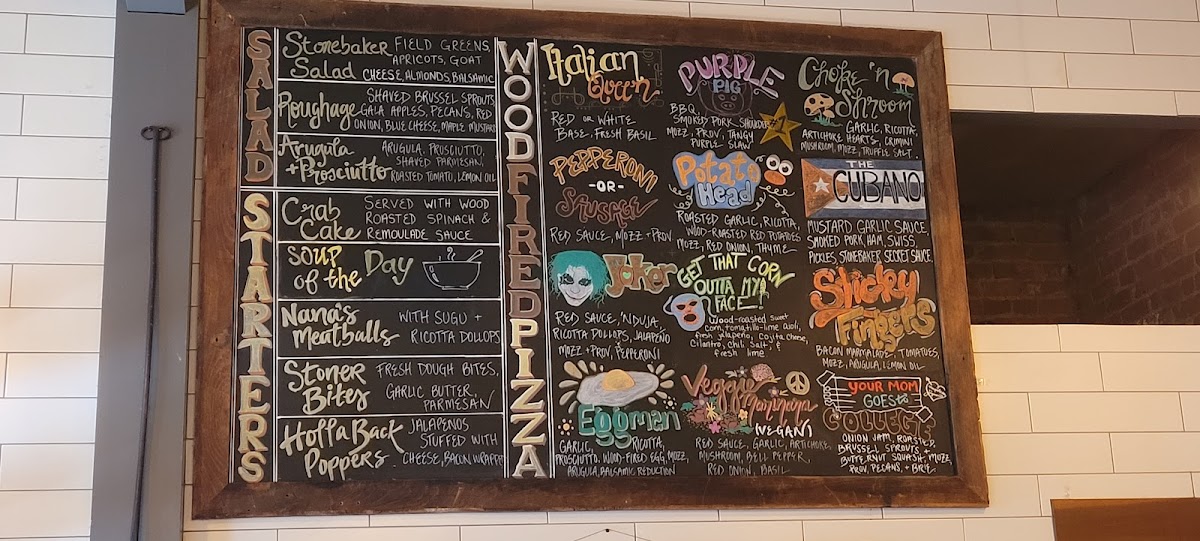 SALAD
Stonebaker FIELD GREENS,
APRICOTS, GOAT
Salad CHEESE, ALMONDS, BALSAMIC
SHAVED BRUSSEL SPROUTS
Roughage GALA APPLES, PECANS, RED
ONION, BLUE CHEESE, MAPLE MUSTARD
Arugula ARUGULA, PROSCIUTTO,
SHAVED PARMESAN,
+Prosciutto ROASTED TOMATO, LEMON OIL
STARTERS
Crab SERVED WITH WOOD
ROASTED SPINACH &
Cake REMOULADE SAUCE
SOUP
of the Day
Nana's WITH SUGU +
Meatballs RICOTTA DOLLOPS
Stoner FRESH DOUGH BITES,
Bites GARLIC BUTTER,
PARMESAN
Holla Back JALAPENOS
STUFFED WITH
Poppers CHEESE, BACON WRAPPED
WOOD FIRED PIZZA
Italian
Queen
RED OR WHITE
BASE, FRESH BASIL
PEPPERONI
-OR-
SAUSAGE
RED SAUCE, MOZZ + PROV.
Joker
RED SAUCE, 'NDUJA,
RICOTTA DOLLOPS, JALAPEÑO
MOZZ + PROV, PEPPERONI
Eggman
GARLIC, RICOTTA,
PROSCIUTTO, WOOD-FIRED EGG, MOZZ,
ARUGULA, BALSAMIC REDUCTION
PURPLE
PIG
BBQ,
SMOKED PORK SHOULDER
MOZZ, PROV, TANGY
PURPLE SLAW
#1
Potato
Head
ROASTED GARLIC, RICOTTA,
WOOD-ROASTED RED POTATOES
MOZZ, RED ONION, THYME
GET THAT CORN
OUTTA MY
FACE!
Wood-roasted sweet
corn, tomatillo-lime aioli,
fresh jalapeño, cojita cheese,
cilantro, chili salt, &
fresh lime
Veggie
Marinara
(VEGAN)
RED SAUCE, GARLIC, ARTICHOKE,
MUSHROOM, BELL PEPPER,
RED ONION, BASIL
Choke 'n
Shroom
GARLIC, RICOTTA,
ARTICHOKE, HEARTS, CRIMINI
MUSHROOM, MOZZ, TRUFFLE SALT
THE
CUBANO
MUSTARD GARLIC SAUCE,
SMOKED PORK, HAM, SWISS,
PICKLES, STONEBAKER SECRET SAUCE
Sticky
Fingers
BACON MARMALADE, TOMATOES,
MOZZ, ARUGULA, LEMON OIL
YOUR MOM
GOES TO
COLLEGE
ONION JAM, ROASTED,
BRUSSEL SPROUTS +
BUTTERNUT SQUASH, MOZZ
PROV, PECANS, + BRIE